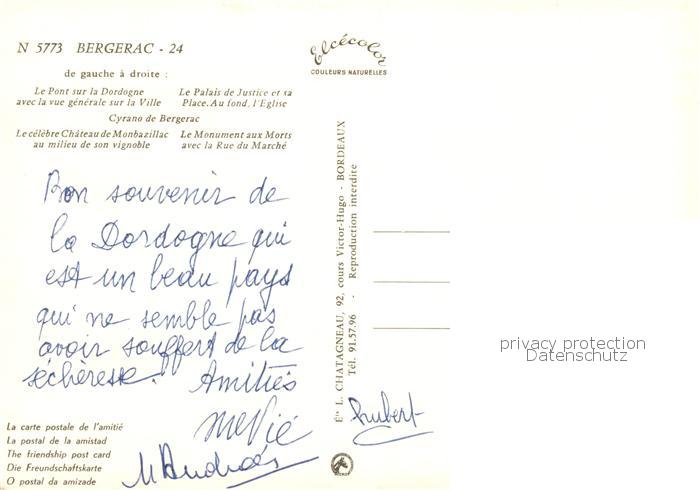 N 5773 BERGERAC - 24
de gauche à droite :
Le Pont sur la Dordogne
avec la vue générale sur la Ville
Le Palais de Justice et sa
Place. Au fond, l'Eglise
Cyrano de Bergerac
Le célèbre Château de Monbazillac
au milieu de son vignoble
Le Monument aux Morts
avec la Rue du Marché
Elcécolor
COULEURS NATURELLES
Bon souvenir de
la Dordogne qui
est un beau pays
qui ne semble pas
avoir souffert de la
sécheresse. Amitiés
Hubert
La carte postale de l'amitié
La postal de la amistad
The friendship post card
Die Freundschaftskarte
O postal da amizade
Éts L. CHATAGNEAU, 92, cours Victor-Hugo - BORDEAUX
Tél. 91.57.96 - Reproduction interdite
privacy protection
Datenschutz